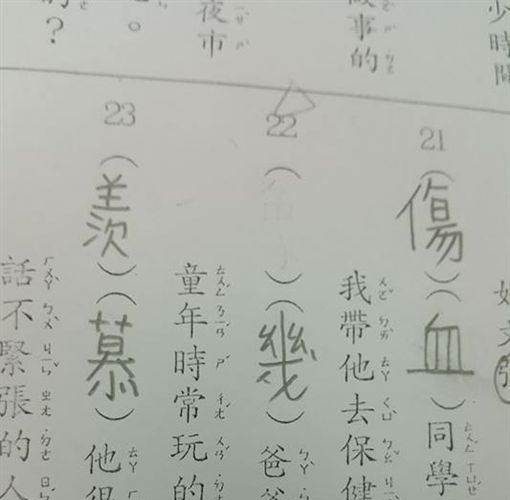 少時間
做事的
夜市
。
的？
21（傷）（血）同學
我帶他去保健
22（　）（幾）爸爸
童年時常玩的
23（羨）（慕）他很
話不緊張的人